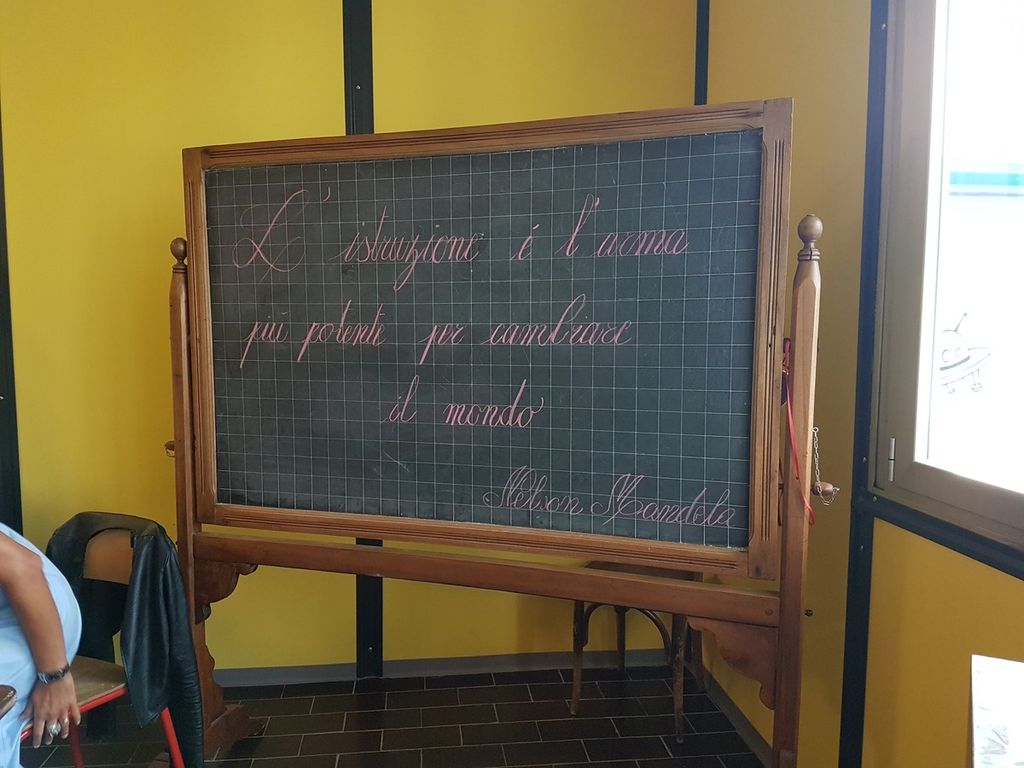 L'istruzione é l'arma
più potente per cambiare
il mondo
Nelson Mandela